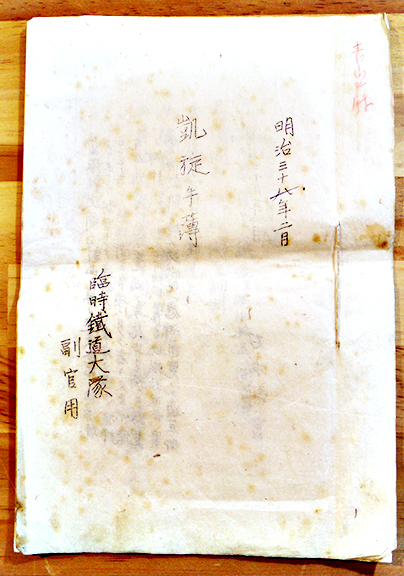 明治三十八年二月
凱旋手簿
臨時鐵道大隊
副官用